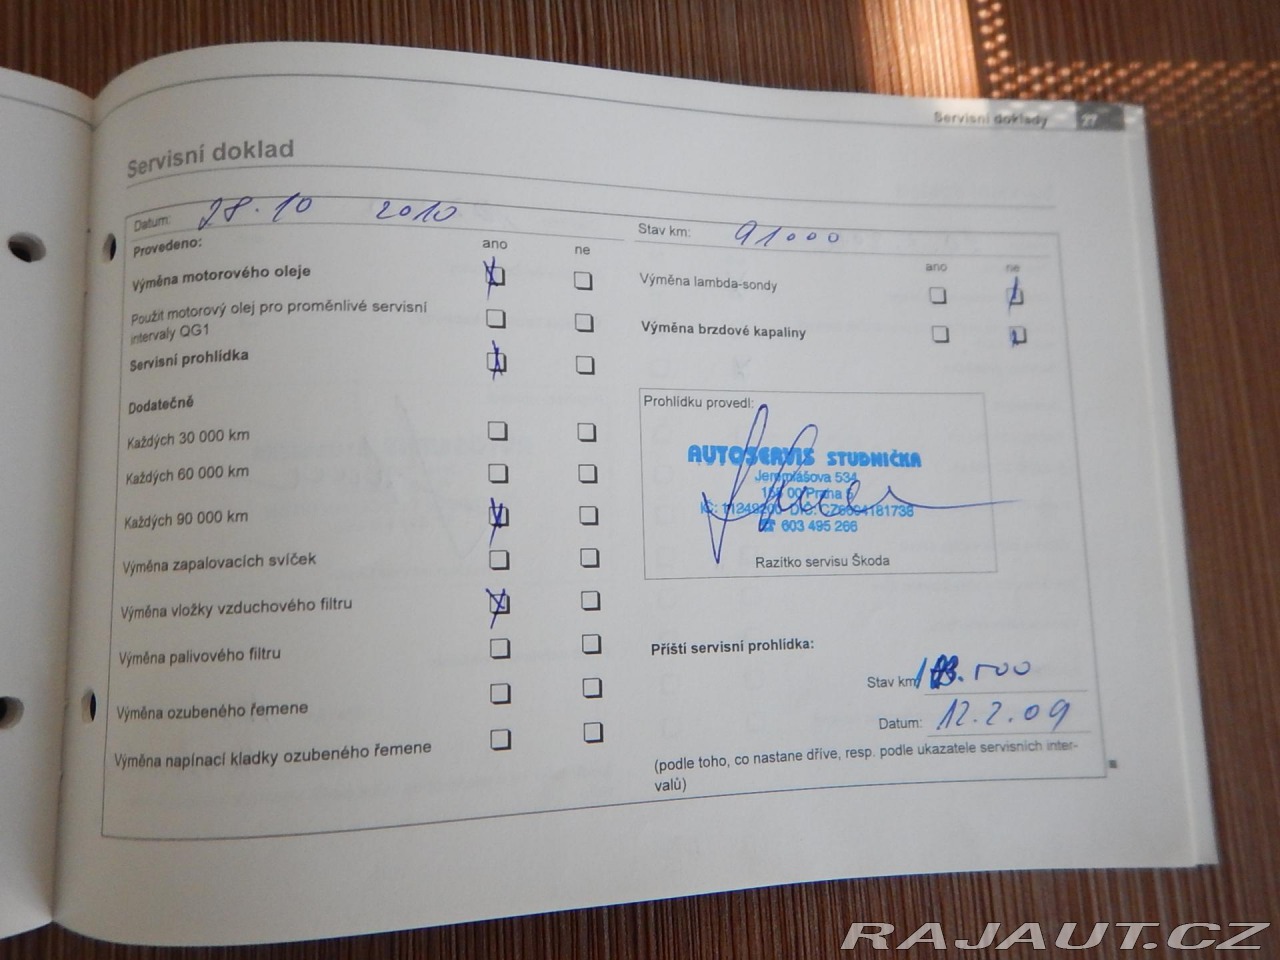 Servisní doklady 27
Servisní doklad
Datum: 28.10 2010
Stav km: 91000
Provedeno: ano ne
ano ne
Výměna motorového oleje
Výměna lambda-sondy
Použit motorový olej pro proměnlivé servisní
intervaly QG1
Výměna brzdové kapaliny
Servisní prohlídka
Dodatečně
Každých 30 000 km
Každých 60 000 km
Každých 90 000 km
Výměna zapalovacích svíček
Výměna vložky vzduchového filtru
Výměna palivového filtru
Výměna ozubeného řemene
Výměna napínací kladky ozubeného řemene
Prohlídku provedl:
AUTOSERVIS STUDNIČKA
Jeremiášova 534
155 00 Praha 5
IČ: DIČ:
☎ 603 495 266
Razítko servisu Škoda
Příští servisní prohlídka:
Stav km
Datum: 12.2.09
(podle toho, co nastane dříve, resp. podle ukazatele servisních inter-
valů)
RAJAUT.CZ